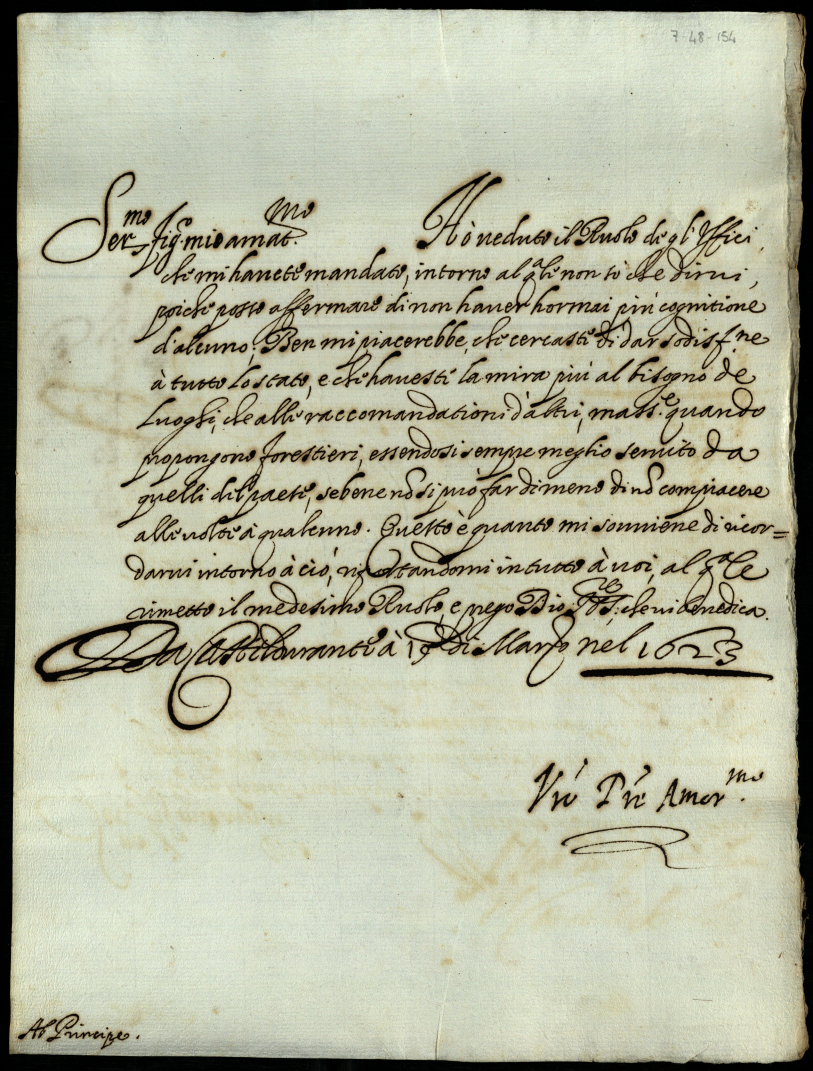 7-48-154
Ser.mo Fig.o mio amat.mo Hò veduto il Ruolo degl'Uffici,
che mi havete mandato, intorno al q.ale non sò che dirvi,
poiche posso affermare di non haver hormai più cognitione
d'alcuno; Ben mi piacerebbe, che cercaste di dar sodisf.ne
à tutto lo stato, e che haveste la mira più al bisogno de
Luoghi, che alle raccomandationi d'altri, mass.e quando
propongono forestieri, essendosi sempre meglio servito da
quelli del paese, sebene nõ si può far di meno di nõ compiacere
alle volte à qualcuno. Questo è quanto mi souviene di ricor=
darvi intorno à ciò, rip​ortandomi in tutto à voi, al q.ale
rimetto il medesimo Ruolo, e prego Dio che vi benedica.
Da Casteldurante à di Marzo nel 1623
Vrõ Prẽ Amor.mo
Al Principe.